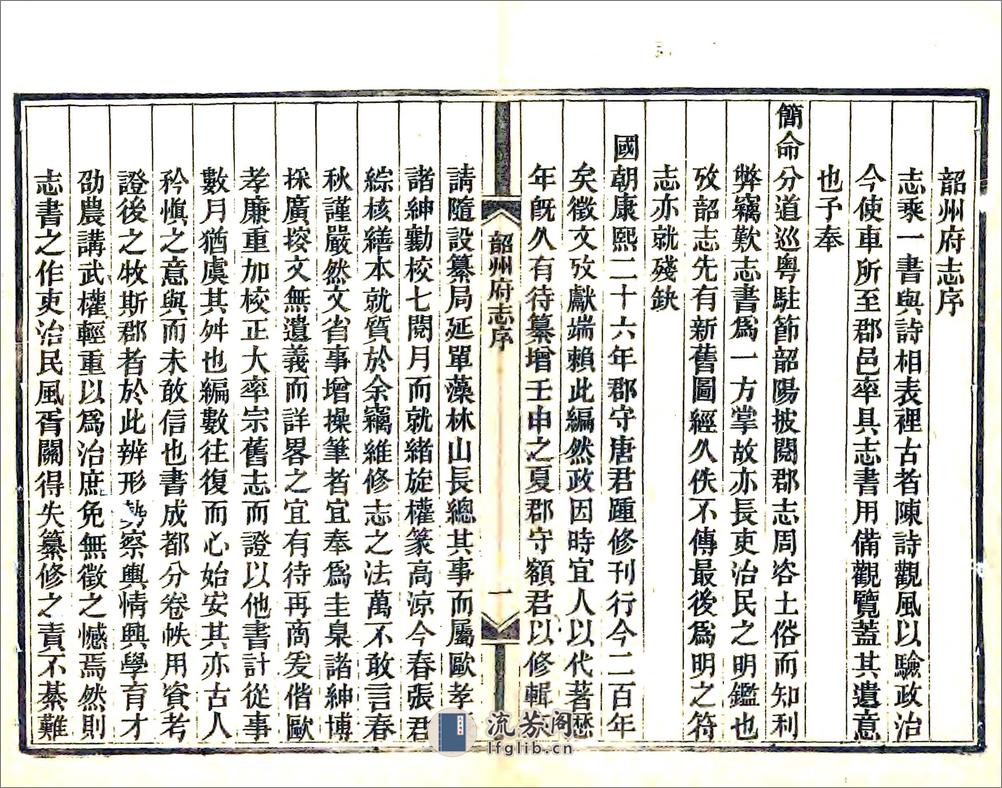 韶州府志序
志乘一書與詩相表裡古者陳詩觀風以驗政治
今使車所至郡邑率具志書用備觀覽蓋其遺意
也予奉
簡命分道巡粵駐節韶陽披閱郡志周咨土俗而知利
弊竊歎志書爲一方掌故亦長吏治民之明鑑也
攷韶志先有新舊圖經久佚不傳最後爲明之符
志亦就殘缺
國朝康熙二十六年郡守唐君踵修刊行今二百年
矣徵文攷獻端賴此編然政因時宜人以代著歷
年旣久有待纂增壬申之夏郡守額君以修輯
韶州府志序
一
請隨設纂局延單藻林山長總其事而屬歐孝
諸紳勷校七閱月而就緒旋權篆高涼今春張君
綜核繕本就質於余竊維修志之法萬不敢言春
秋謹嚴然文省事增操筆者宜奉爲圭臬諸紳博
採廣搜文無遺義而詳畧之宜有待再商爰偕歐
孝廉重加校正大率宗舊志而證以他書計從事
數月猶虞其舛也編數往復而心始安其亦古人
矜愼之意與而未敢信也書成都分卷帙用資考
證後之牧斯郡者於此辨形勢察輿情興學育才
劭農講武權輕重以爲治庶免無徵之憾焉然則
志書之作吏治民風胥關得失纂修之責不綦難
流芬阁
lfglib.cn